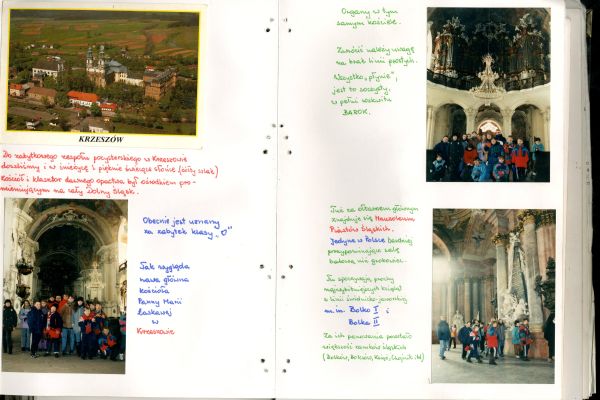 KRZESZÓW
Do zabytkowego zespołu pocysterskiego w Krzeszowie
doszliśmy i w śnieżycę i piękne świecące słońce (żółty szlak)
Kościół i klasztor dawnego opactwa był ośrodkiem pro-
mieniującym na cały Dolny Śląsk.
Obecnie jest uznany
za zabytek klasy „0”
Tak wygląda
nawa główna
kościoła
Panny Marii
Łaskawej
w
Krzeszowie
Organy w tym
samym kościele.
Zwrócić należy uwagę
na brak linii prostych.
Wszystko „płynie”,
jest to soczysty,
w pełni rozkwitu
BAROK.
Tuż za ołtarzem głównym
znajduje się Mauzoleum
Piastów Śląskich.
Jedyne w Polsce bardziej
przypominające salę
balową niż grobowiec.
Tu spoczywają prochy
najwybitniejszych książąt
z linii świdnicko-jaworskiej
m.in. Bolko I i
Bolko II
Za ich panowania powstało
większość zamków śląskich
(Bolków, Książ, Chojnik itd)